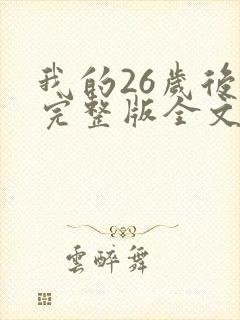 我的26歲後
完整版全文
雲醉舞